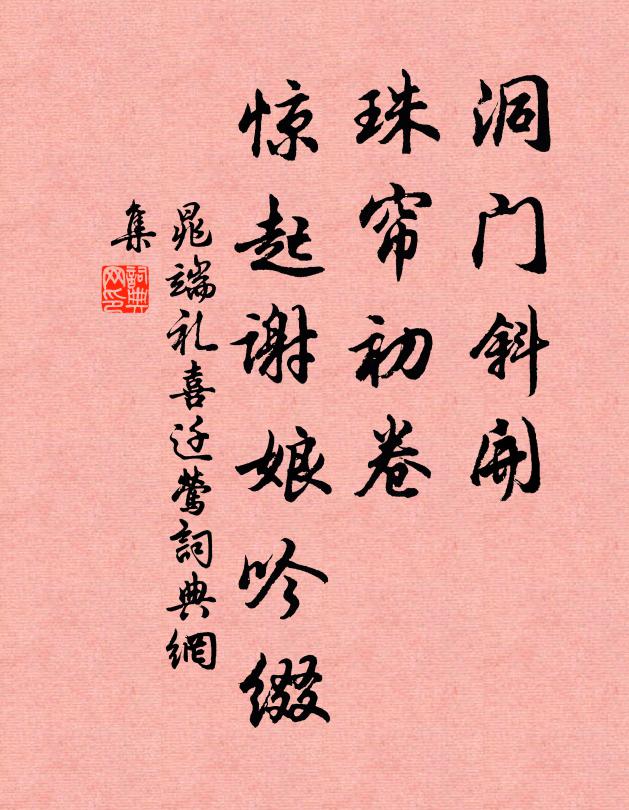 洞门斜开
珠帘初卷
惊起谢娘吟缀
晁端礼喜迁莺詞典網
集
詞典
网印